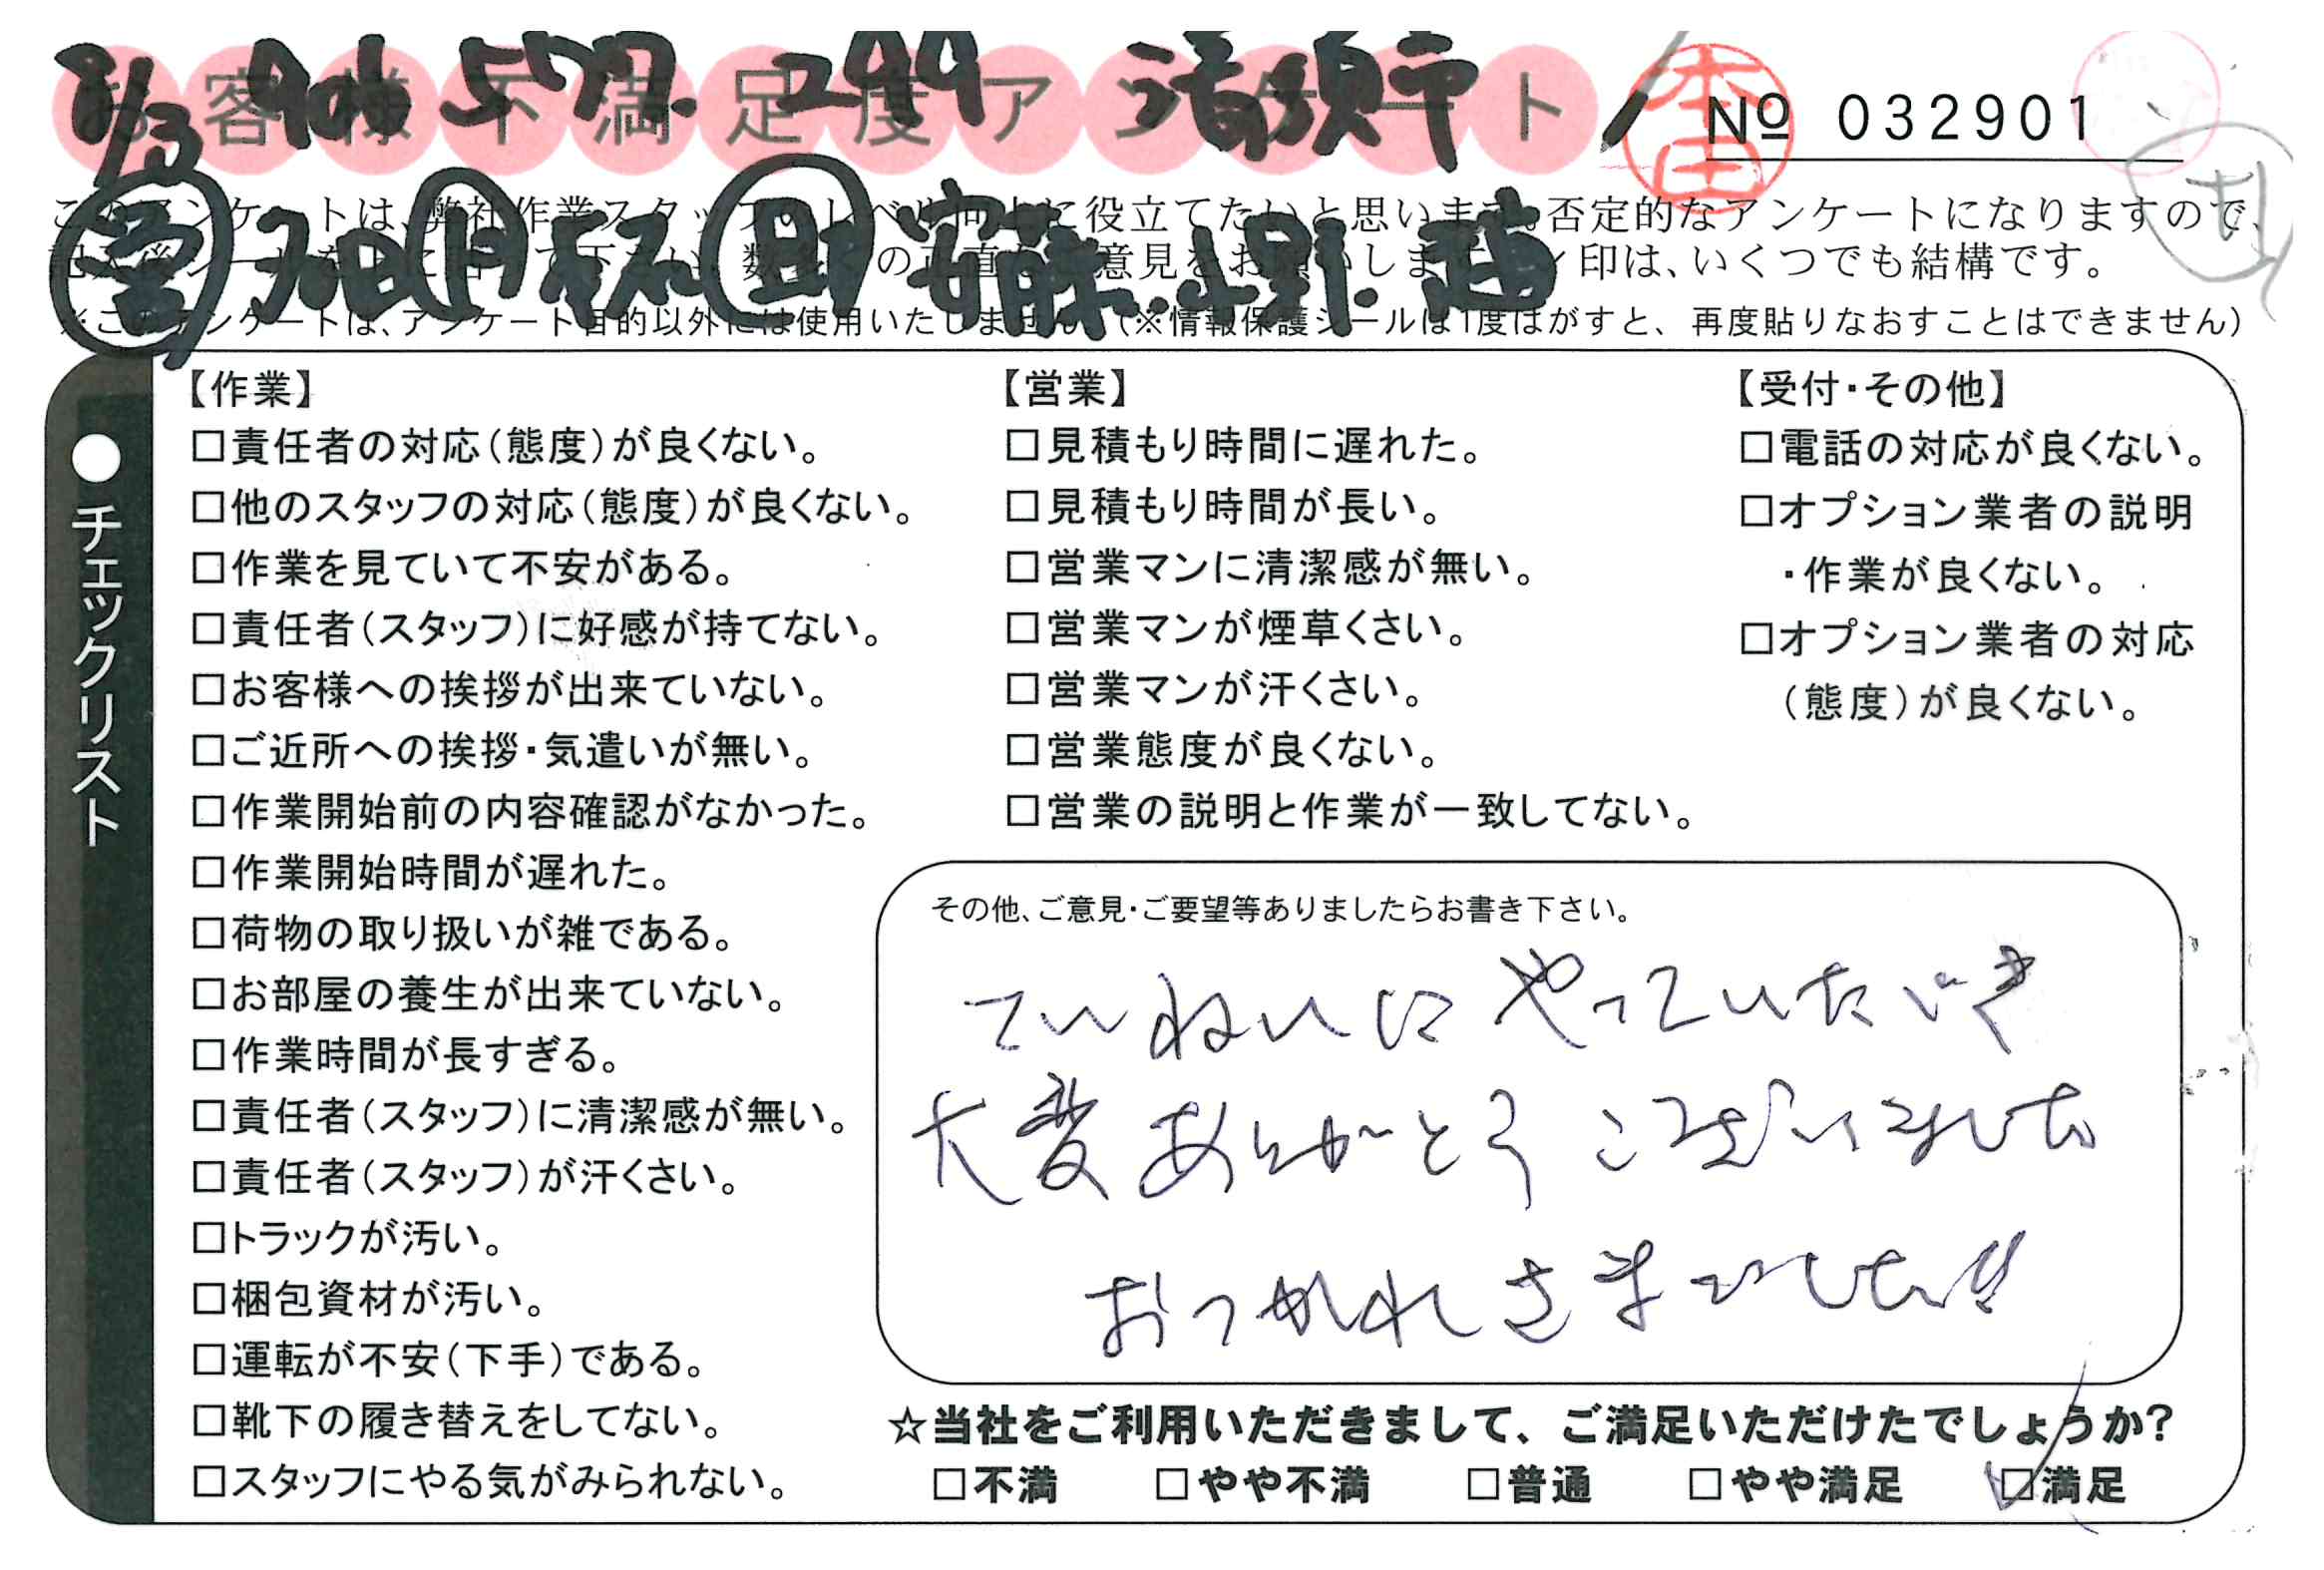 お客様不満足度アンケート
8/3 清須市
本田
№ 032901
このアンケートは、弊社作業スタッフのレベル向上に役立てたいと思います。否定的なアンケートになりますので、
意見をお願いします。レ印は、いくつでも結構です。
※このアンケートは、アンケート目的以外には使用いたしません。(※情報保護シールは1度はがすと、再度貼りなおすことはできません)
営 安藤.小野.
●チェックリスト
【作業】
□責任者の対応(態度)が良くない。
□他のスタッフの対応(態度)が良くない。
□作業を見ていて不安がある。
□責任者(スタッフ)に好感が持てない。
□お客様への挨拶が出来ていない。
□ご近所への挨拶・気遣いが無い。
□作業開始前の内容確認がなかった。
□作業開始時間が遅れた。
□荷物の取り扱いが雑である。
□お部屋の養生が出来ていない。
□作業時間が長すぎる。
□責任者(スタッフ)に清潔感が無い。
□責任者(スタッフ)が汗くさい。
□トラックが汚い。
□梱包資材が汚い。
□運転が不安(下手)である。
□靴下の履き替えをしてない。
□スタッフにやる気がみられない。
【営業】
□見積もり時間に遅れた。
□見積もり時間が長い。
□営業マンに清潔感が無い。
□営業マンが煙草くさい。
□営業マンが汗くさい。
□営業態度が良くない。
□営業の説明と作業が一致してない。
【受付・その他】
□電話の対応が良くない。
□オプション業者の説明
・作業が良くない。
□オプション業者の対応
(態度)が良くない。
その他、ご意見・ご要望等ありましたらお書き下さい。
ていねいにやっていただき
大変ありがとうございました
おつかれさまでした!!
☆当社をご利用いただきまして、ご満足いただけたでしょうか?
□不満 □やや不満 □普通 □やや満足 ☑満足